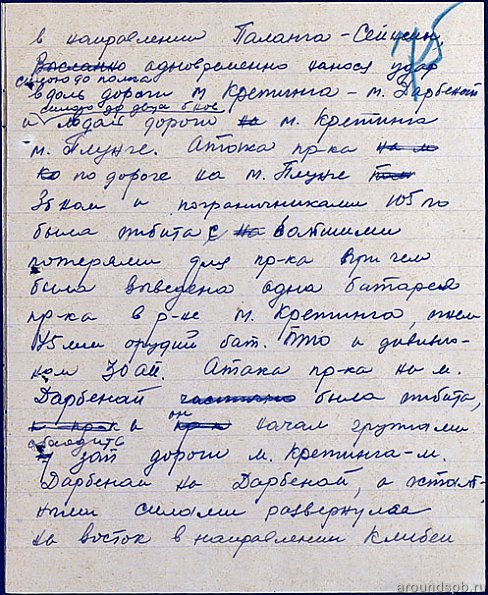 в направлении Паланга-Сейнсин,
одновременно нанося удар
силою до полка
вдоль дороги м Кретинга - м. Дарбенай
силою до двух б-нов
и вдоль дороги м. Кретинга
м. Плунге. Атака пр-ка на м
ко по дороге на м. Плунге
3б ном и пограничниками 105 по
была отбита с большими
потерями для пр-ка При чем
была выведена одна батарея
пр-ка в р-не м. Кретинга, огнем
45 мм орудий бат. ПТО и дивизио-
ном ап. Атака пр-ка на м.
Дарбенай частично была отбита,
и пр-к и он пр-к начал группами
обходить
зап дороги м. Кретинга-м.
Дарбенай на Дарбенай, а осталь-
ными силами развернулся
на восток в направлении
aroundspb.ru